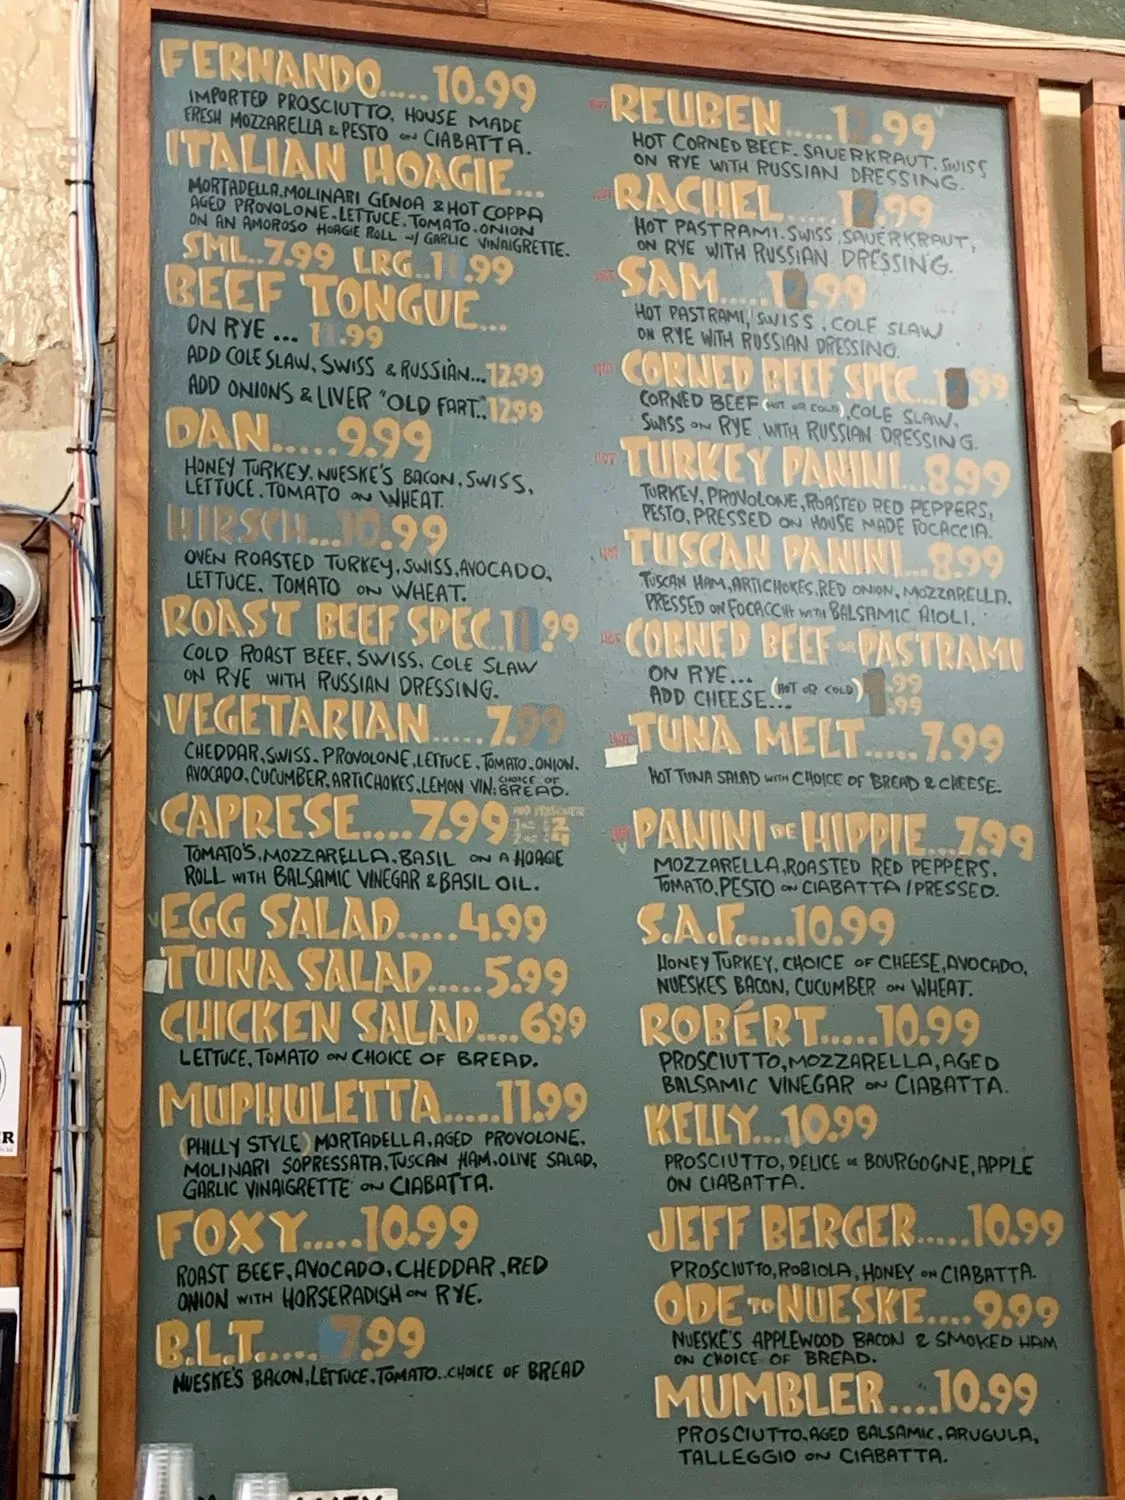 FERNANDO.....10.99
IMPORTED PROSCIUTTO, HOUSE MADE
FRESH MOZZARELLA & PESTO ON CIABATTA.
ITALIAN HOAGIE...
MORTADELLA, MOLINARI GENOA & HOT COPPA
AGED PROVOLONE, LETTUCE, TOMATO, ONION
ON AN AMOROSO HOAGIE ROLL W/ GARLIC VINAIGRETTE.
SML..7.99 LRG..11.99
BEEF TONGUE...
ON RYE ... 11.99
ADD COLE SLAW, SWISS & RUSSIAN...12.99
ADD ONIONS & LIVER "OLD FART"..12.99
DAN.....9.99
HONEY TURKEY, NUESKE'S BACON, SWISS,
LETTUCE, TOMATO ON WHEAT.
HIRSCH...10.99
OVEN ROASTED TURKEY, SWISS, AVOCADO,
LETTUCE, TOMATO ON WHEAT.
ROAST BEEF SPEC..11.99
COLD ROAST BEEF, SWISS, COLE SLAW
ON RYE WITH RUSSIAN DRESSING.
VEGETARIAN.....7.99
CHEDDAR, SWISS, PROVOLONE, LETTUCE, TOMATO, ONION,
AVOCADO, CUCUMBER, ARTICHOKES, LEMON VIN; CHOICE OF BREAD.
CAPRESE.....7.99
TOMATO'S, MOZZARELLA, BASIL ON A HOAGIE
ROLL WITH BALSAMIC VINEGAR & BASIL OIL.
EGG SALAD.....4.99
TUNA SALAD.....5.99
CHICKEN SALAD....6.99
LETTUCE, TOMATO ON CHOICE OF BREAD.
MUPHULETTA.....11.99
(PHILLY STYLE) MORTADELLA, AGED PROVOLONE,
MOLINARI SOPRESSATA, TUSCAN HAM, OLIVE SALAD,
GARLIC VINAIGRETTE ON CIABATTA.
FOXY.....10.99
ROAST BEEF, AVOCADO, CHEDDAR, RED
ONION WITH HORSERADISH ON RYE.
B.L.T..... 7.99
NUESKE'S BACON, LETTUCE, TOMATO..CHOICE OF BREAD
HOT REUBEN.....12.99
HOT CORNED BEEF, SAUERKRAUT, SWISS
ON RYE WITH RUSSIAN DRESSING.
HOT RACHEL.....12.99
HOT PASTRAMI, SWISS, SAUERKRAUT,
ON RYE WITH RUSSIAN DRESSING.
HOT SAM.....12.99
HOT PASTRAMI, SWISS, COLE SLAW
ON RYE WITH RUSSIAN DRESSING.
HOT CORNED BEEF SPEC..12.99
CORNED BEEF (HOT OR COLD), COLE SLAW,
SWISS ON RYE WITH RUSSIAN DRESSING.
HOT TURKEY PANINI...8.99
TURKEY, PROVOLONE, ROASTED RED PEPPERS,
PESTO, PRESSED ON HOUSE MADE FOCACCIA.
HOT TUSCAN PANINI...8.99
TUSCAN HAM, ARTICHOKES, RED ONION, MOZZARELLA,
PRESSED ON FOCACCIA WITH BALSAMIC AIOLI.
HOT CORNED BEEF OR PASTRAMI
ON RYE... (HOT OR COLD) .99
ADD CHEESE... .99
HOT TUNA MELT.....7.99
HOT TUNA SALAD WITH CHOICE OF BREAD & CHEESE.
HOT PANINI DE HIPPIE...7.99
MOZZARELLA, ROASTED RED PEPPERS,
TOMATO, PESTO ON CIABATTA / PRESSED.
S.A.F.....10.99
HONEY TURKEY, CHOICE OF CHEESE, AVOCADO,
NUESKES BACON, CUCUMBER ON WHEAT.
ROBÉRT.....10.99
PROSCIUTTO, MOZZARELLA, AGED
BALSAMIC VINEGAR ON CIABATTA.
KELLY...10.99
PROSCIUTTO, DELICE DE BOURGOGNE, APPLE
ON CIABATTA.
JEFF BERGER.....10.99
PROSCIUTTO, ROBIOLA, HONEY ON CIABATTA.
ODE TO NUESKE....9.99
NUESKE'S APPLEWOOD BACON & SMOKED HAM
ON CHOICE OF BREAD.
MUMBLER....10.99
PROSCIUTTO, AGED BALSAMIC, ARUGULA,
TALLEGGIO ON CIABATTA.